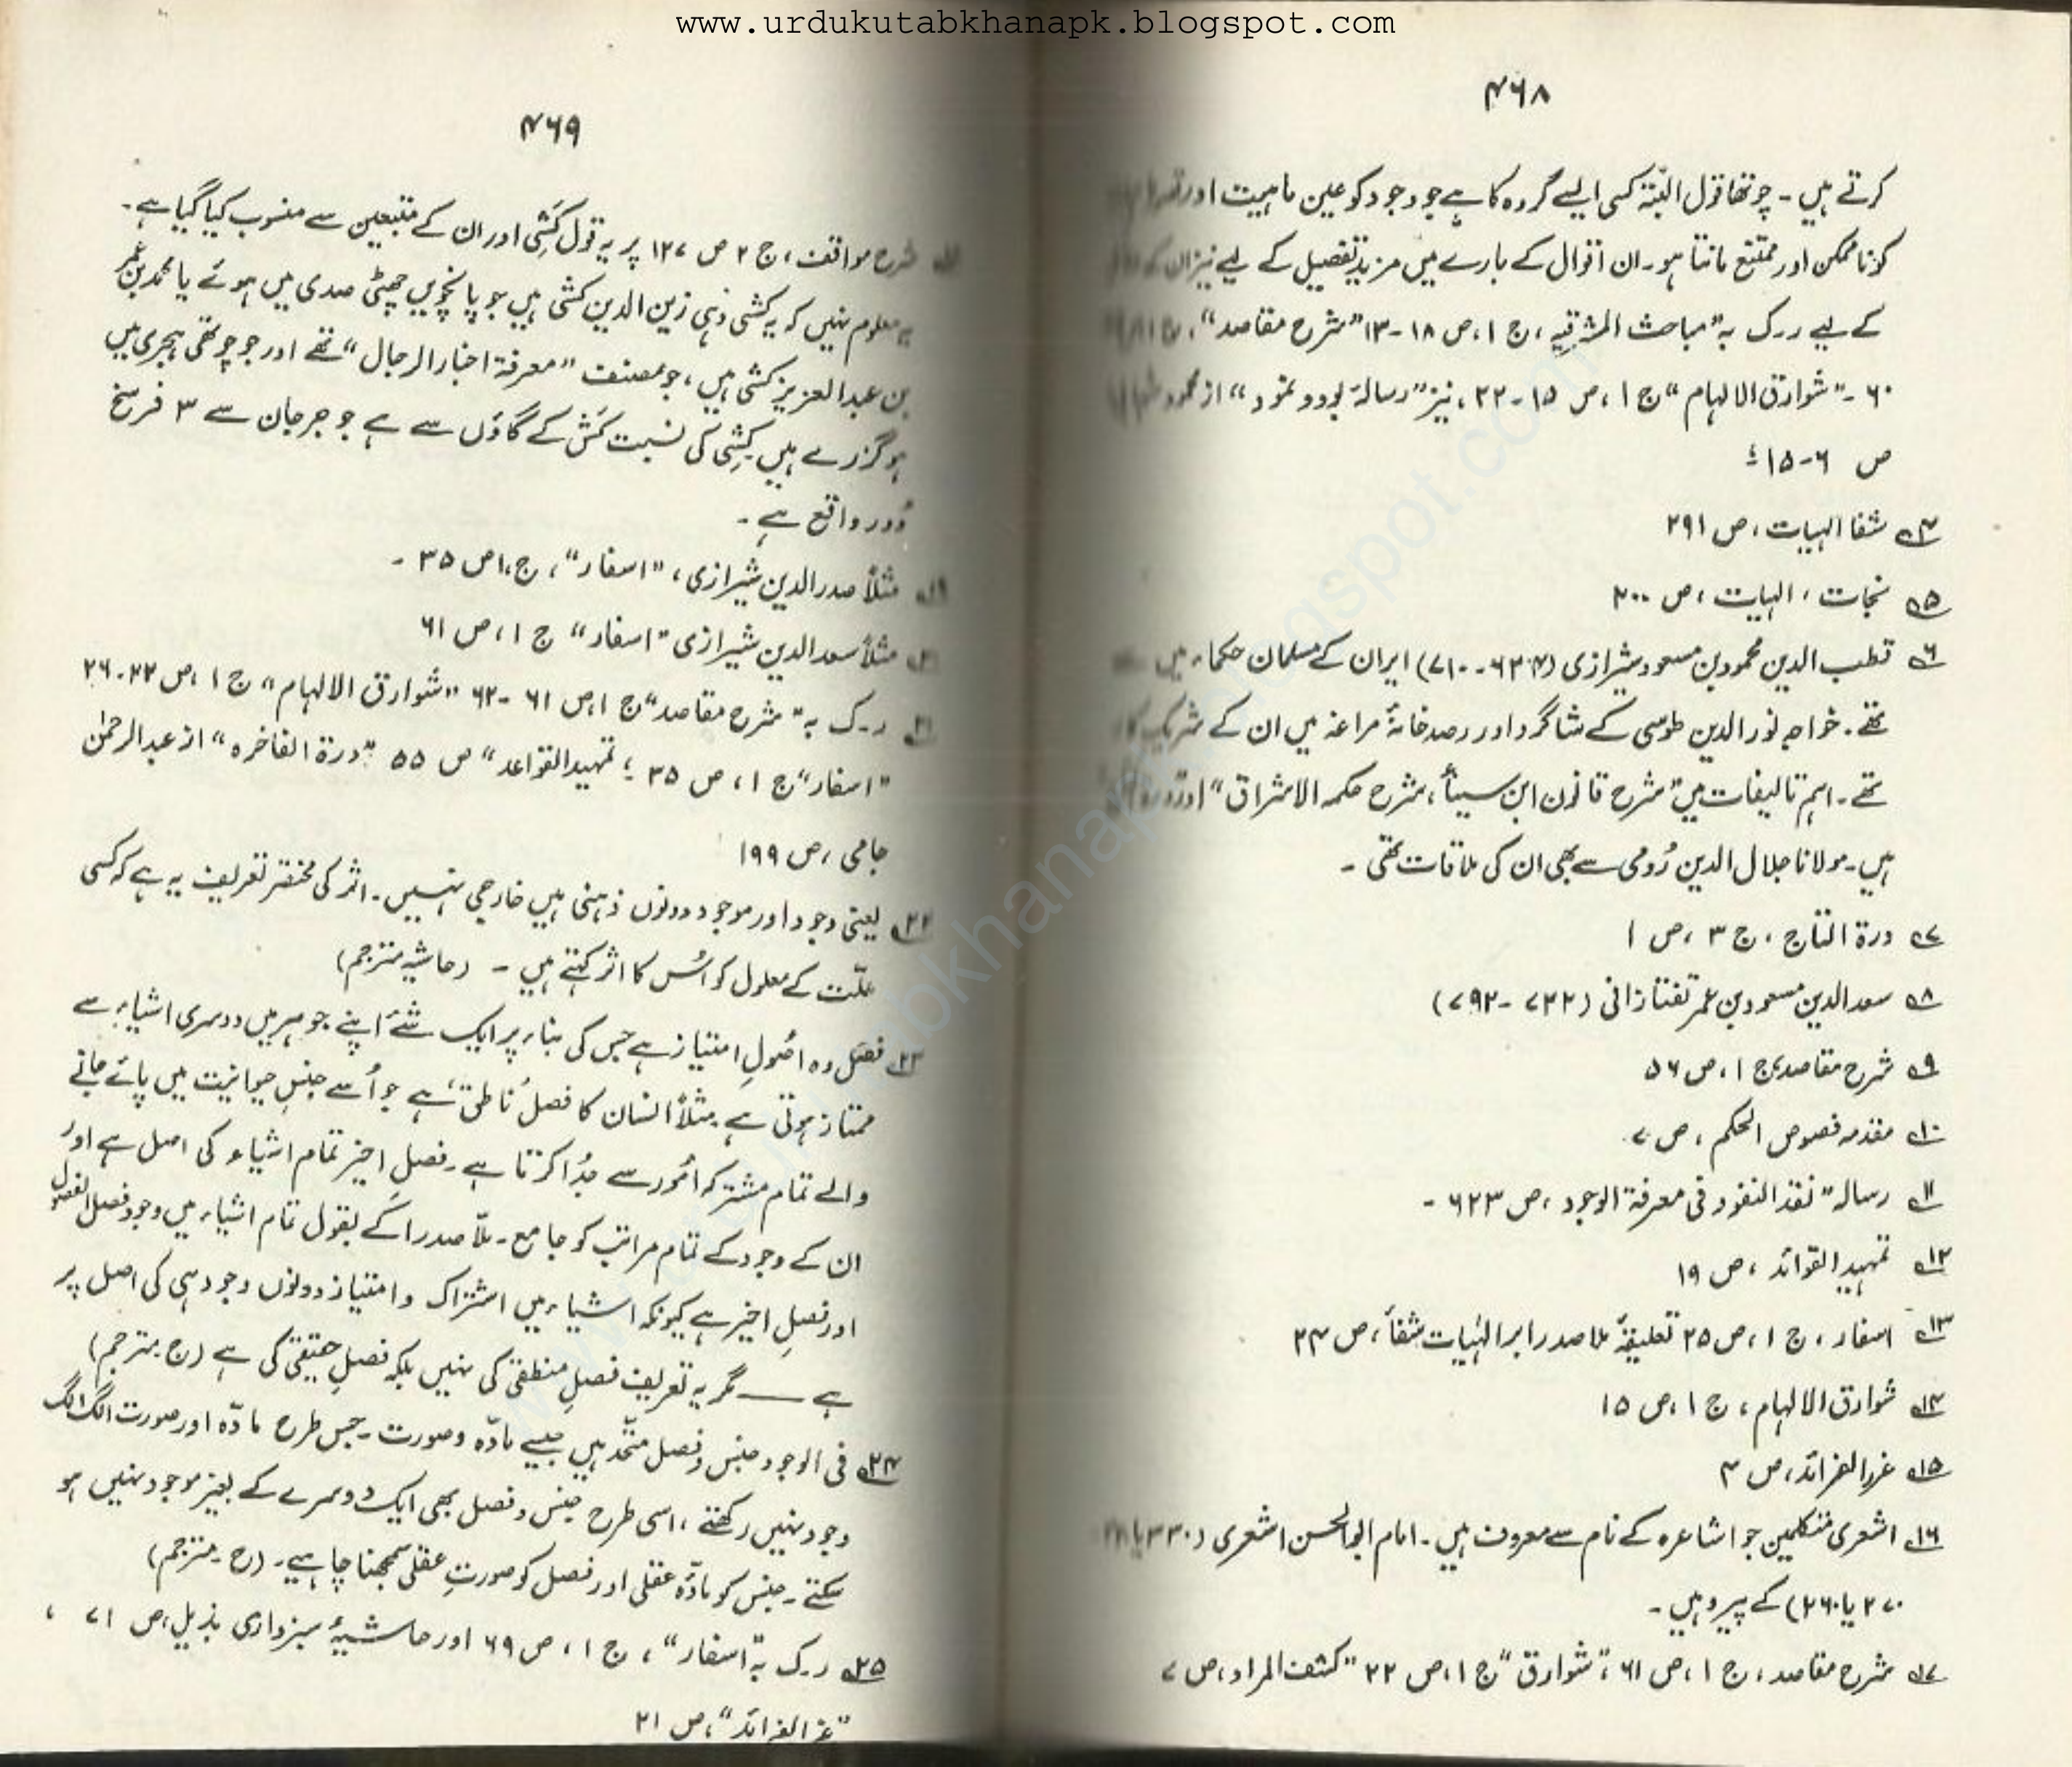 www.urdukutabkhanapk.blogspot.com
۴۶۸
کرتے ہیں۔ چوتھا قول البتّہ کسی ایسے گروہ کا ہے جو وجود کو عین ماہیت اور
کو ناممکن اور ممتنع مانتا ہو۔ ان اقوال کے بارے میں مزید تفصیل کے لیے نیز ان کے
کے لیے ر۔ک بہ "مباحث المشرقیہ، ج ۱، ص ۱۸-۱۳ "شرح مقاصد"، ج ۱،
۶۰۔ "شوارق الالہام" ج ۱، ص ۱۵-۲۲، نیز "رسالۂ بود و نمود" از محمود
ص ۶-۱۵؛
۴؎ شفا الہیات، ص ۲۹۱
۵؎ نجات، الہیات، ص ۲۰۰
۶؎ قطب الدین محمود بن مسعود شیرازی (۶۳۴-۷۱۰) ایران کے مسلمان حکماء میں
تھے۔ خواجہ نور الدین طوسی کے شاگرد اور رصد خانۂ مراغہ میں ان کے شریک کار
تھے۔ اہم تالیفات میں "شرح قانون ابن سینا"، شرح حکمہ الاشراق" اور
ہیں۔ مولانا جلال الدین رُومی سے بھی ان کی ملاقات تھی۔
۷؎ درۃ التاج، ج ۳، ص ۱
۸؎ سعد الدین مسعود بن عمر تفتازانی (۷۲۲-۷۹۲)
۹؎ شرح مقاصد، ج ۱، ص ۵۶
۱۰؎ مقدمہ فصوص الحکم، ص ۷
۱۱؎ رسالہ "نقد النقود فی معرفۃ الوجود، ص ۶۲۳۔
۱۲؎ تمہید القوائد، ص ۱۹
۱۳؎ اسفار، ج ۱، ص ۲۵ تعلیقۂ ملا صدرا بر الہٰیات شفأ، ص ۲۴
۱۴؎ شوارق الالہام، ج ۱، ص ۱۵
۱۵؎ غرر الفرائد، ص ۴
۱۶؎ اشعری متکلمین جو اشاعرہ کے نام سے معروف ہیں۔ امام ابو الحسن اشعری (۳۳۰ یا
۲۷۰ یا ۲۶۰) کے پیرو ہیں۔
۱۷؎ شرح مقاصد، ج ۱، ص ۶۱، "شوارق" ج ۱، ص ۲۲ "کشف المراد، ص ۷
۴۶۹
شرح مواقف، ج ۲ ص ۱۲۷ پر یہ قول کَشِی اور ان کے متبعین سے منسوب کیا گیا ہے۔
یہ معلوم نہیں کہ یہ کشی وہی زین الدین کشی ہیں جو پانچویں چھٹی صدی میں ہوئے یا محمد بن عمر
بن عبد العزیز کشی ہیں، جو مصنف "معرفۃ اخبار الرجال" تھے اور جو چوتھی ہجری میں
ہو گزرے ہیں۔ کشِی کی نسبت کَش کے گاؤں سے ہے جو جرجان سے ۳ فرسخ
دُور واقع ہے۔
۱۹؎ مثلاً صدر الدین شیرازی، "اسفار"، ج ،۱ ص ۳۵۔
۲۰؎ مثلاً سعد الدین شیرازی "اسفار" ج ۱، ص ۶۱
۲۱؎ ر۔ک بہ "شرح مقاصد" ج ۱، ص ۶۱-۶۲ "شوارق الالہام" ج ۱، ص ۲۲-۲۶
"اسفار" ج ۱، ص ۳۵؛ تمہید القواعد" ص ۵۵ "درۃ الفاخرہ" از عبد الرحمٰن
جامی، ص ۱۹۹
۲۲؎ یعنی وجود اور موجود دونوں ذہنی ہیں خارجی نہیں۔ اثر کی مختصر تعریف یہ ہے کہ کسی
علّت کے معلول کو اُس کا اثر کہتے ہیں۔ (حاشیہ مترجم)
۲۳؎ فصل وہ اصُولِ امتیاز ہے جس کی بناء پر ایک شے اپنے جوہر میں دوسری اشیاء سے
ممتاز ہوتی ہے۔ مثلاً انسان کا فصل 'ناطق' ہے جو اُسے جنسِ حیوانیت میں پائے جانے
والے تمام مشترکہ امُور سے جُدا کرتا ہے۔ فصلِ اخیر تمام اشیاء کی اصل ہے اور
ان کے وجود کے تمام مراتب کو جامع۔ ملّا صدرا کے بقول تمام اشیاء میں وجود فصل الفصول
اور فصلِ اخیر ہے کیونکہ اشیاء میں اشتراک و امتیاز دونوں وجود ہی کی اصل پر
ہے — مگر یہ تعریف فصلِ منطقی کی نہیں بلکہ فصلِ حقیقی کی ہے (ح۔ مترجم)
۲۴؎ فی الوجود جنس و فصل متّحد ہیں جیسے مادّہ و صورت۔ جس طرح مادّہ اور صورت الگ الگ
وجود نہیں رکھتے، اسی طرح جنس و فصل بھی ایک دوسرے کے بغیر موجود نہیں ہو
سکتے۔ جنس کو مادّہ عقلی اور فصل کو صورتِ عقلی سمجھنا چاہیے۔ (ح۔ مترجم)
۲۵؎ ر۔ک بہ "اسفار"، ج ۱، ص ۶۹ اور حاشیۂ سبزواری بذیل، ص ۷۱،
الفرائد"، ص ۲۱